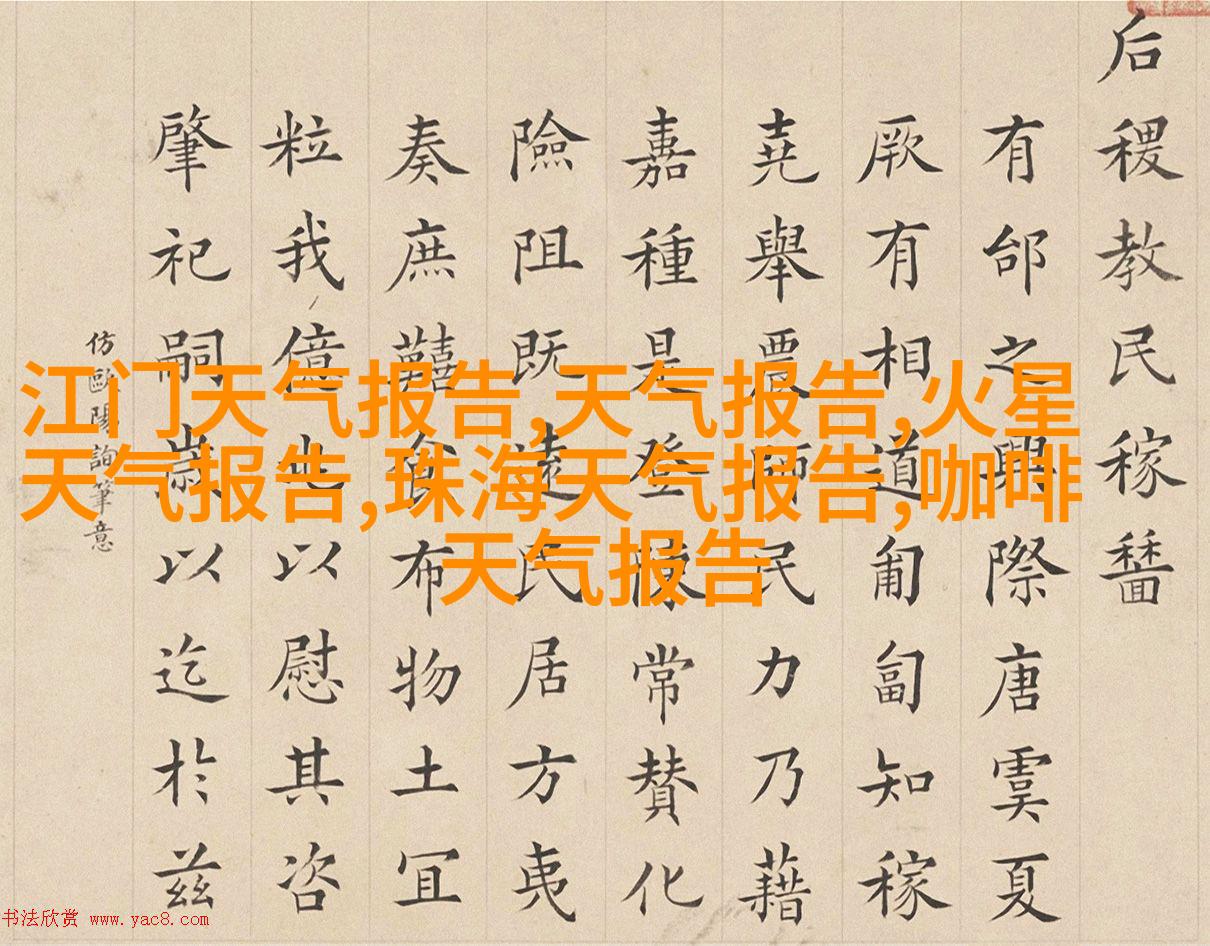 后稷教民稼穡
有邰之興際唐虞夏
厥有相道匍匐知稼
堯舉農師民力乃藉
嘉種是登陳常贊化
險阻既遠民居方夷
奏庶囏食布物土宜
粒我億兆以慰其咨
肇祀嗣歲以迄於茲
仿歐陽詢筆意
江门天气报告,天气报告,火星
天气报告,珠海天气报告,咖啡
天气报告
书法欣赏 www.yac8.com